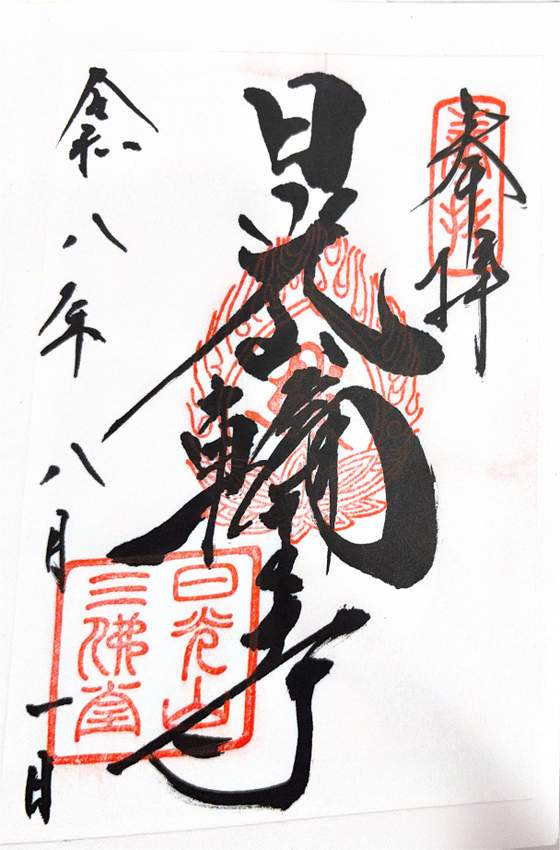 奉拝
奉拝
日光山輪王寺
日光山
三佛堂
令和八年八月一日